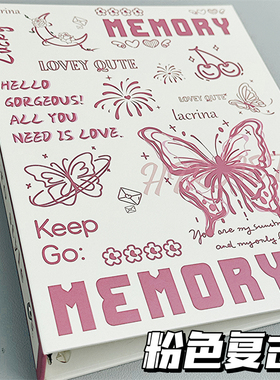 lacrina
MEMORY
LOVEY QUTE
HELLO
GORGEOUS!
ALL YOU
NEED IS LOVE.
LOVEY QUTE
lacrina
Keep
Go:
You are my
and my only
MEMORY
粉色复古